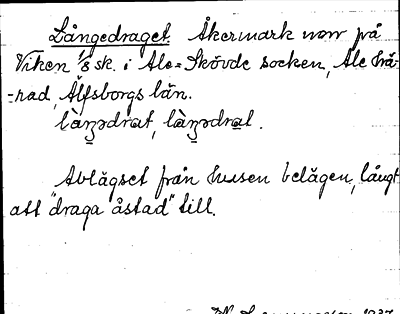 Långedraget Åkermark norr på
Viken 1/8 sk. i Ale=Skövde socken, Ale hä-
-rad, Älfsborgs län.
làŋədrat, làŋədral.
Avlägset från husen belägen, långt
att "draga åstad" till.
1937